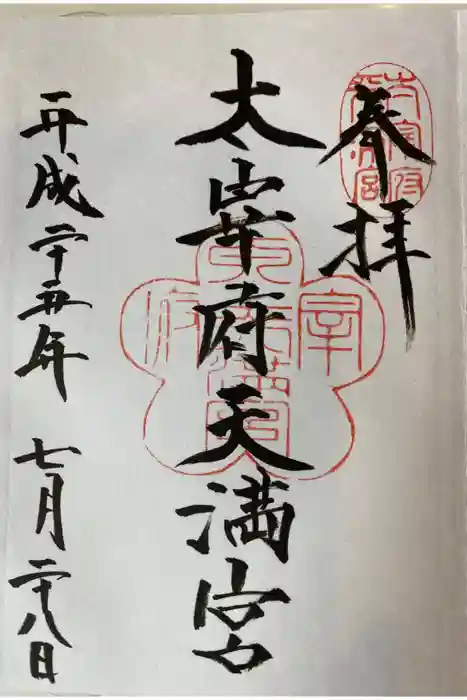 奉拝
太宰府天満宮
平成二十五年 七月二十八日